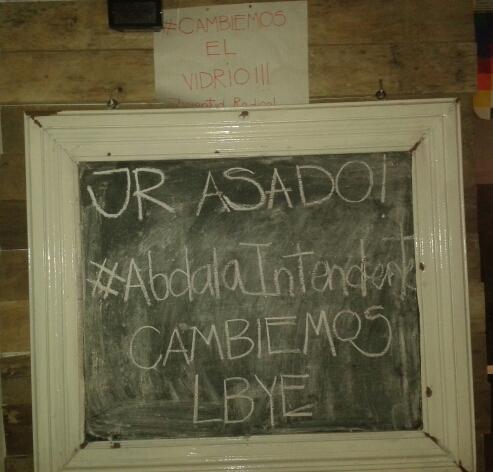 #CAMBIEMOS
EL
VIDRIO!!!
Juventud Radical
JR ASADO!
#AbdalaIntendente
CAMBIEMOS
LBYE